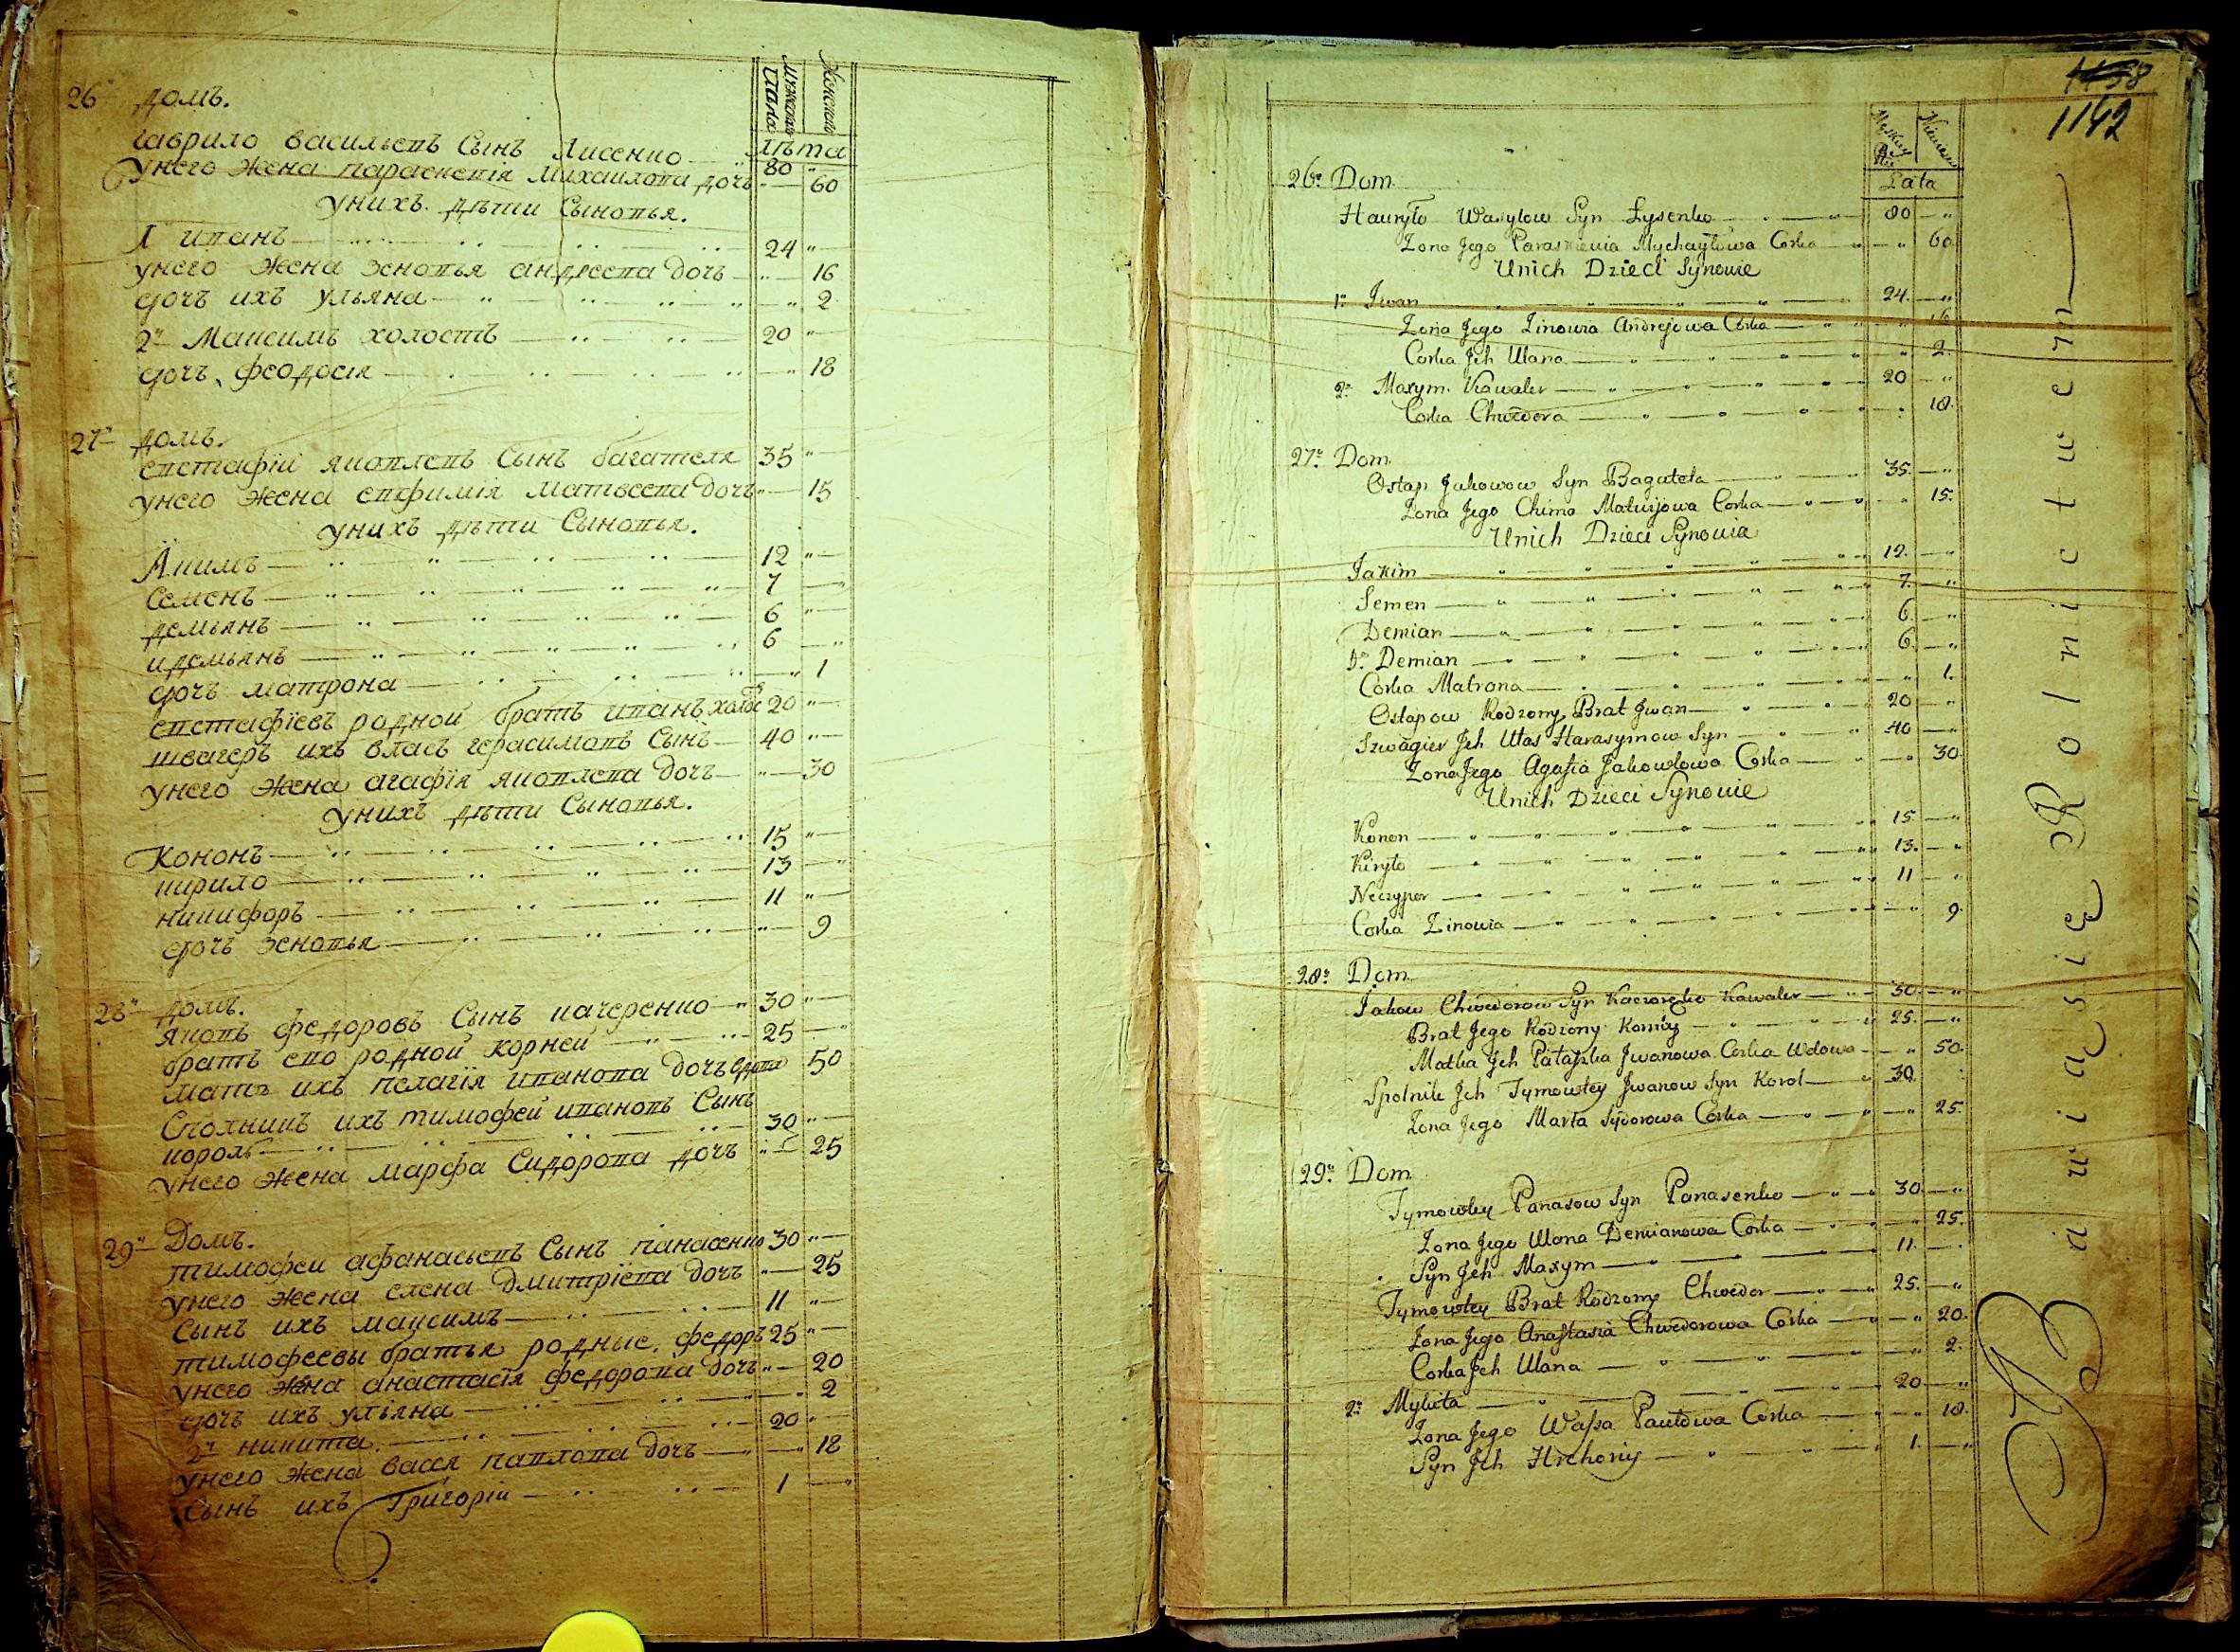 Мужеска пола
Женска
лѣта
26й домъ.
гаврило васильевъ Сынъ Лисенко 80
унего жена параскевія михаилова дочь 60
унихъ дѣти Сыновья.
1 иванъ 24
унего жена зеновья андреева дочь 16
дочъ ихъ ульяна 2
2й Максимъ холостъ 20
дочъ феодосія 18
27й домъ.
евстафій яковлевъ Сынъ багателя 35
унего жена евфимія матвеева дочь 15
унихъ дѣти Сыновья.
Якимъ 12
Семенъ 7
демьянъ 6
идемьянъ 6
дочъ матрона 1
евстафіевъ родной братъ иванъ холос 20
швагеръ ихъ власъ герасимовъ Сынъ 40
унего жена агафія яковлева дочъ 30
унихъ дѣти Сыновья.
Кононъ 15
кирило 13
никифоръ 11
дочъ зеновья 9
28й домъ.
яковъ федоровъ Сынъ качеренко 30
братъ его родной корней 25
мать ихъ пелагія иванова дочъ вдова 50
Сполникъ ихъ тимофей ивановъ Сынъ
король 30
унего жена марфа Сидорова дочъ 25
29й Домъ.
тимофеи афанасьевъ Сынъ панасенко 30
унего жена елена дмитріева дочъ 25
Сынъ ихъ максимъ 11
тимофеевы братья родные. федоръ 25
унего жена анастасія федорова дочъ 20
дочъ ихъ ульяна 2
2й никита 20
унего жена васся павлова дочъ 18
Сынъ ихъ Григоріи 1
1158
1142
Lata
26e Dom
Hauryło Wasylow Syn Łysenko 80
Zona Jego Paraskiewia Mychayłowa Corka 60
Unich Dzieci Synowie
1e Jwan 24
Zona Jego Zinowia Andrejowa Corka 16
Corka Jch Ulana 2
2e Maxym Kawaler 20
Corka Chwedora 18
27e Dom
Ostap Jakowow Syn Bagatela 35
Zona Jego Chima Matwijowa Corka 15
Unich Dzieci Synowia
Jakim 12
Semen 7
Demian 6
D. Demian 6
Corka Matrona 1
Ostapow Rodzony Brat Jwan 20
Szwagier Jch Ułas Harasymow Syn 40
Zona Jego Agafia Jakowlowa Corka 30
Unich Dzieci Synowie
Konon 15
Kiryło 13
Neczypor 11
Corka Zinowia 9
28e Dom
Jakow Chwedorow Syn Kaczorenko Kawaler 30
Brat Jego Rodzony Korniy 25
Matka Jch Pałaszka Jwanowa Corka Wdowa 50
Spolnik Jch Tymowtey Jwanow Syn Korol 30
Zona Jego Marta Sydorowa Corka 25
29e Dom
Tymowtey Panasow Syn Panasenko 30
Zona Jego Ulana Demianowa Corka 25
Syn Jch Maxym 11
Tymowtey Brat Rodzony Chwedor 25
Zona Jego Anastasia Chwedorowa Corka 20
Corka Jch Ulana 2
2e Mykita 20
Zona Jego Wassa Pawłowa Corka 18
Syn Jch Hrehoriy 1
Bawiąsię Rolnictwem